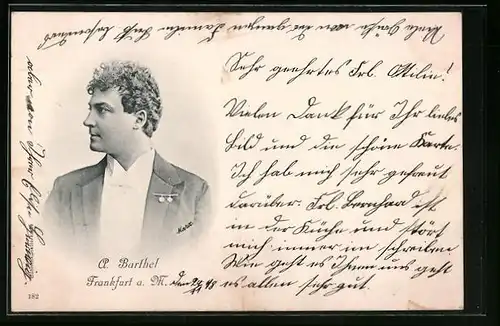 Sehr geehrtes Frl. Otilie!
Vielen Dank für Ihr liebes
Bild und die schöne Karte.
Ich hab mich sehr gefreut
darüber. Frl. Bernhard ist
in der Küche und stört
mich immer im schreiben
Wie geht es Ihnen uns geht
es allen sehr gut.
A. Barthel
Frankfurt a. M.
182
Viele Grüße von der ganzen Familie